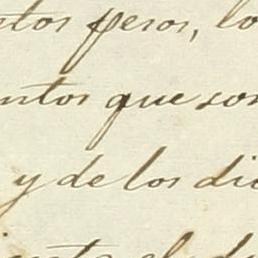 ntos pesos, lo
ntos que son
y de los die